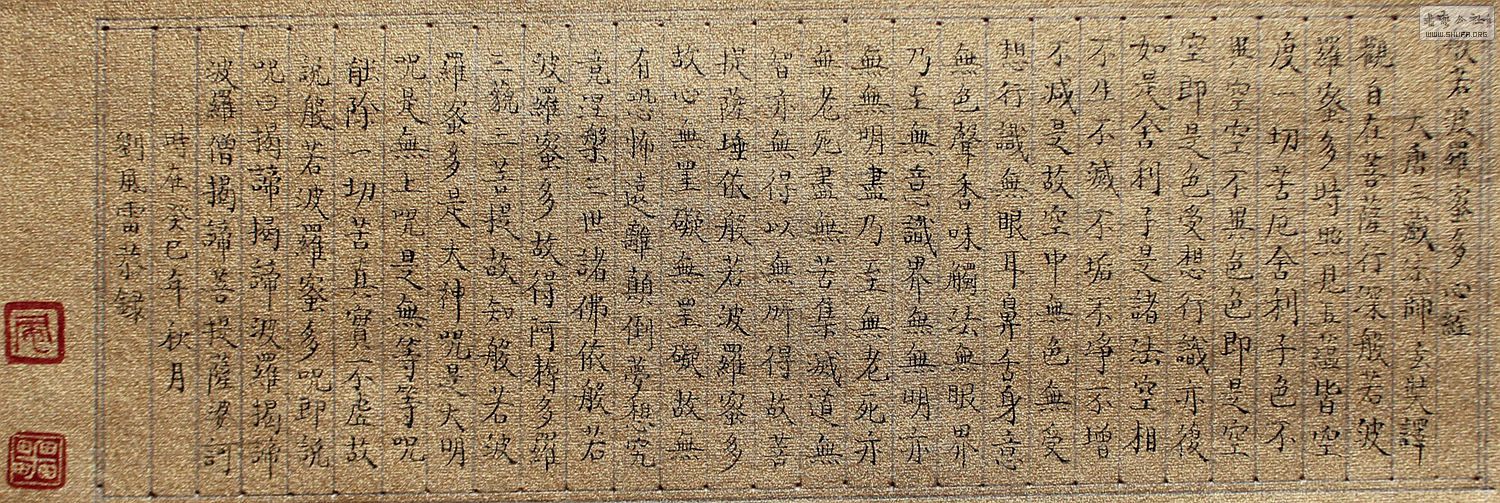 般若波羅蜜多心經
大唐三藏宗師玄奘譯
觀自在菩薩行深般若波
羅蜜多時照見五蘊皆空
度一切苦厄舍利子色不
異空空不異色色即是空
空即是色受想行識亦復
如是舍利子是諸法空相
不生不滅不垢不淨不增
不減是故空中無色無受
想行識無眼耳鼻舌身意
無色聲香味觸法無眼界
乃至無意識界無無明亦
無無明盡乃至無老死亦
無老死盡無苦集滅道無
智亦無得以無所得故菩
提薩埵依般若波羅蜜多
故心無罣礙無罣礙故無
有恐怖遠離顛倒夢想究
竟涅槃三世諸佛依般若
波羅蜜多故得阿耨多羅
三藐三菩提故知般若波
羅蜜多是大神咒是大明
咒是無上咒是無等等咒
能除一切苦真實不虛故
說般若波羅蜜多咒即說
咒曰揭諦揭諦波羅揭諦
波羅僧揭諦菩提薩婆訶
時在癸巳年秋月
劉風雷恭録
WWW.SHUFA.ORG